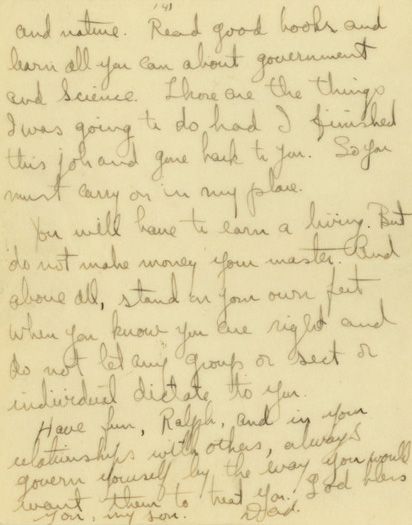 "4"
and nature. Read good books and
learn all you can about government
and Science. Those are the things
I was going to do had I finished
this job and gone back to you. So you
must carry on in my place.
You will have to earn a living. But
do not make money your master. And
above all, stand on your own feet
when you know you are right and
do not let any group or sect or
individual dictate to you.
Have fun, Ralph, and in your
relationships with others, always
govern yourself by the way you would
want them to treat you. God bless
you, my son. Dad.